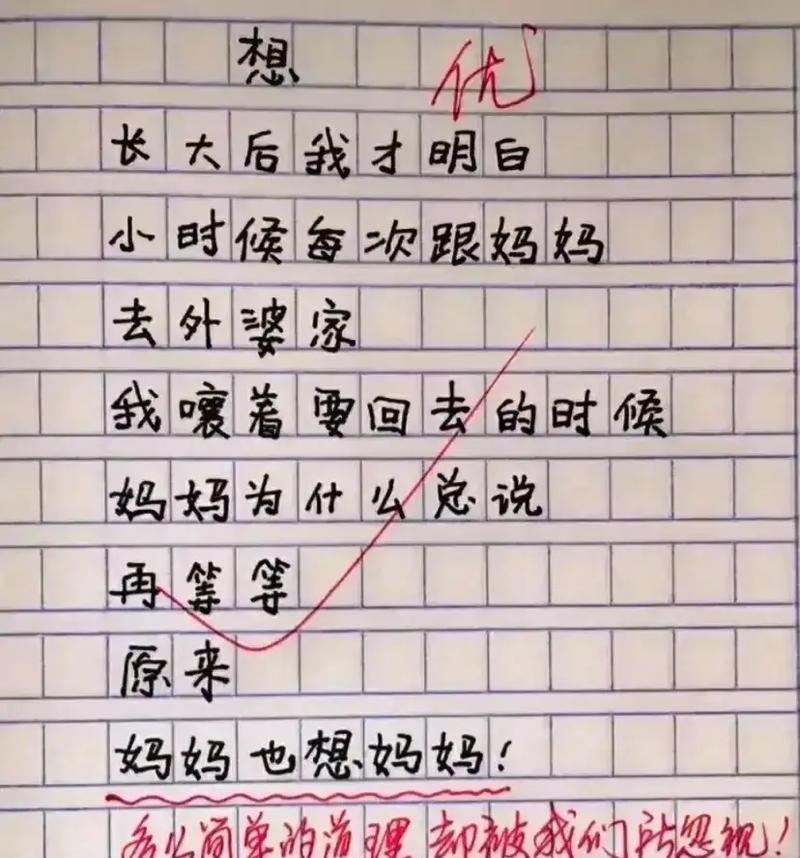 想 优
长大后我才明白
小时候每次跟妈妈
去外婆家
我嚷着要回去的时候
妈妈为什么总说
再等等
原来
妈妈也想妈妈!
多么简单的道理 却被我们所忽视!